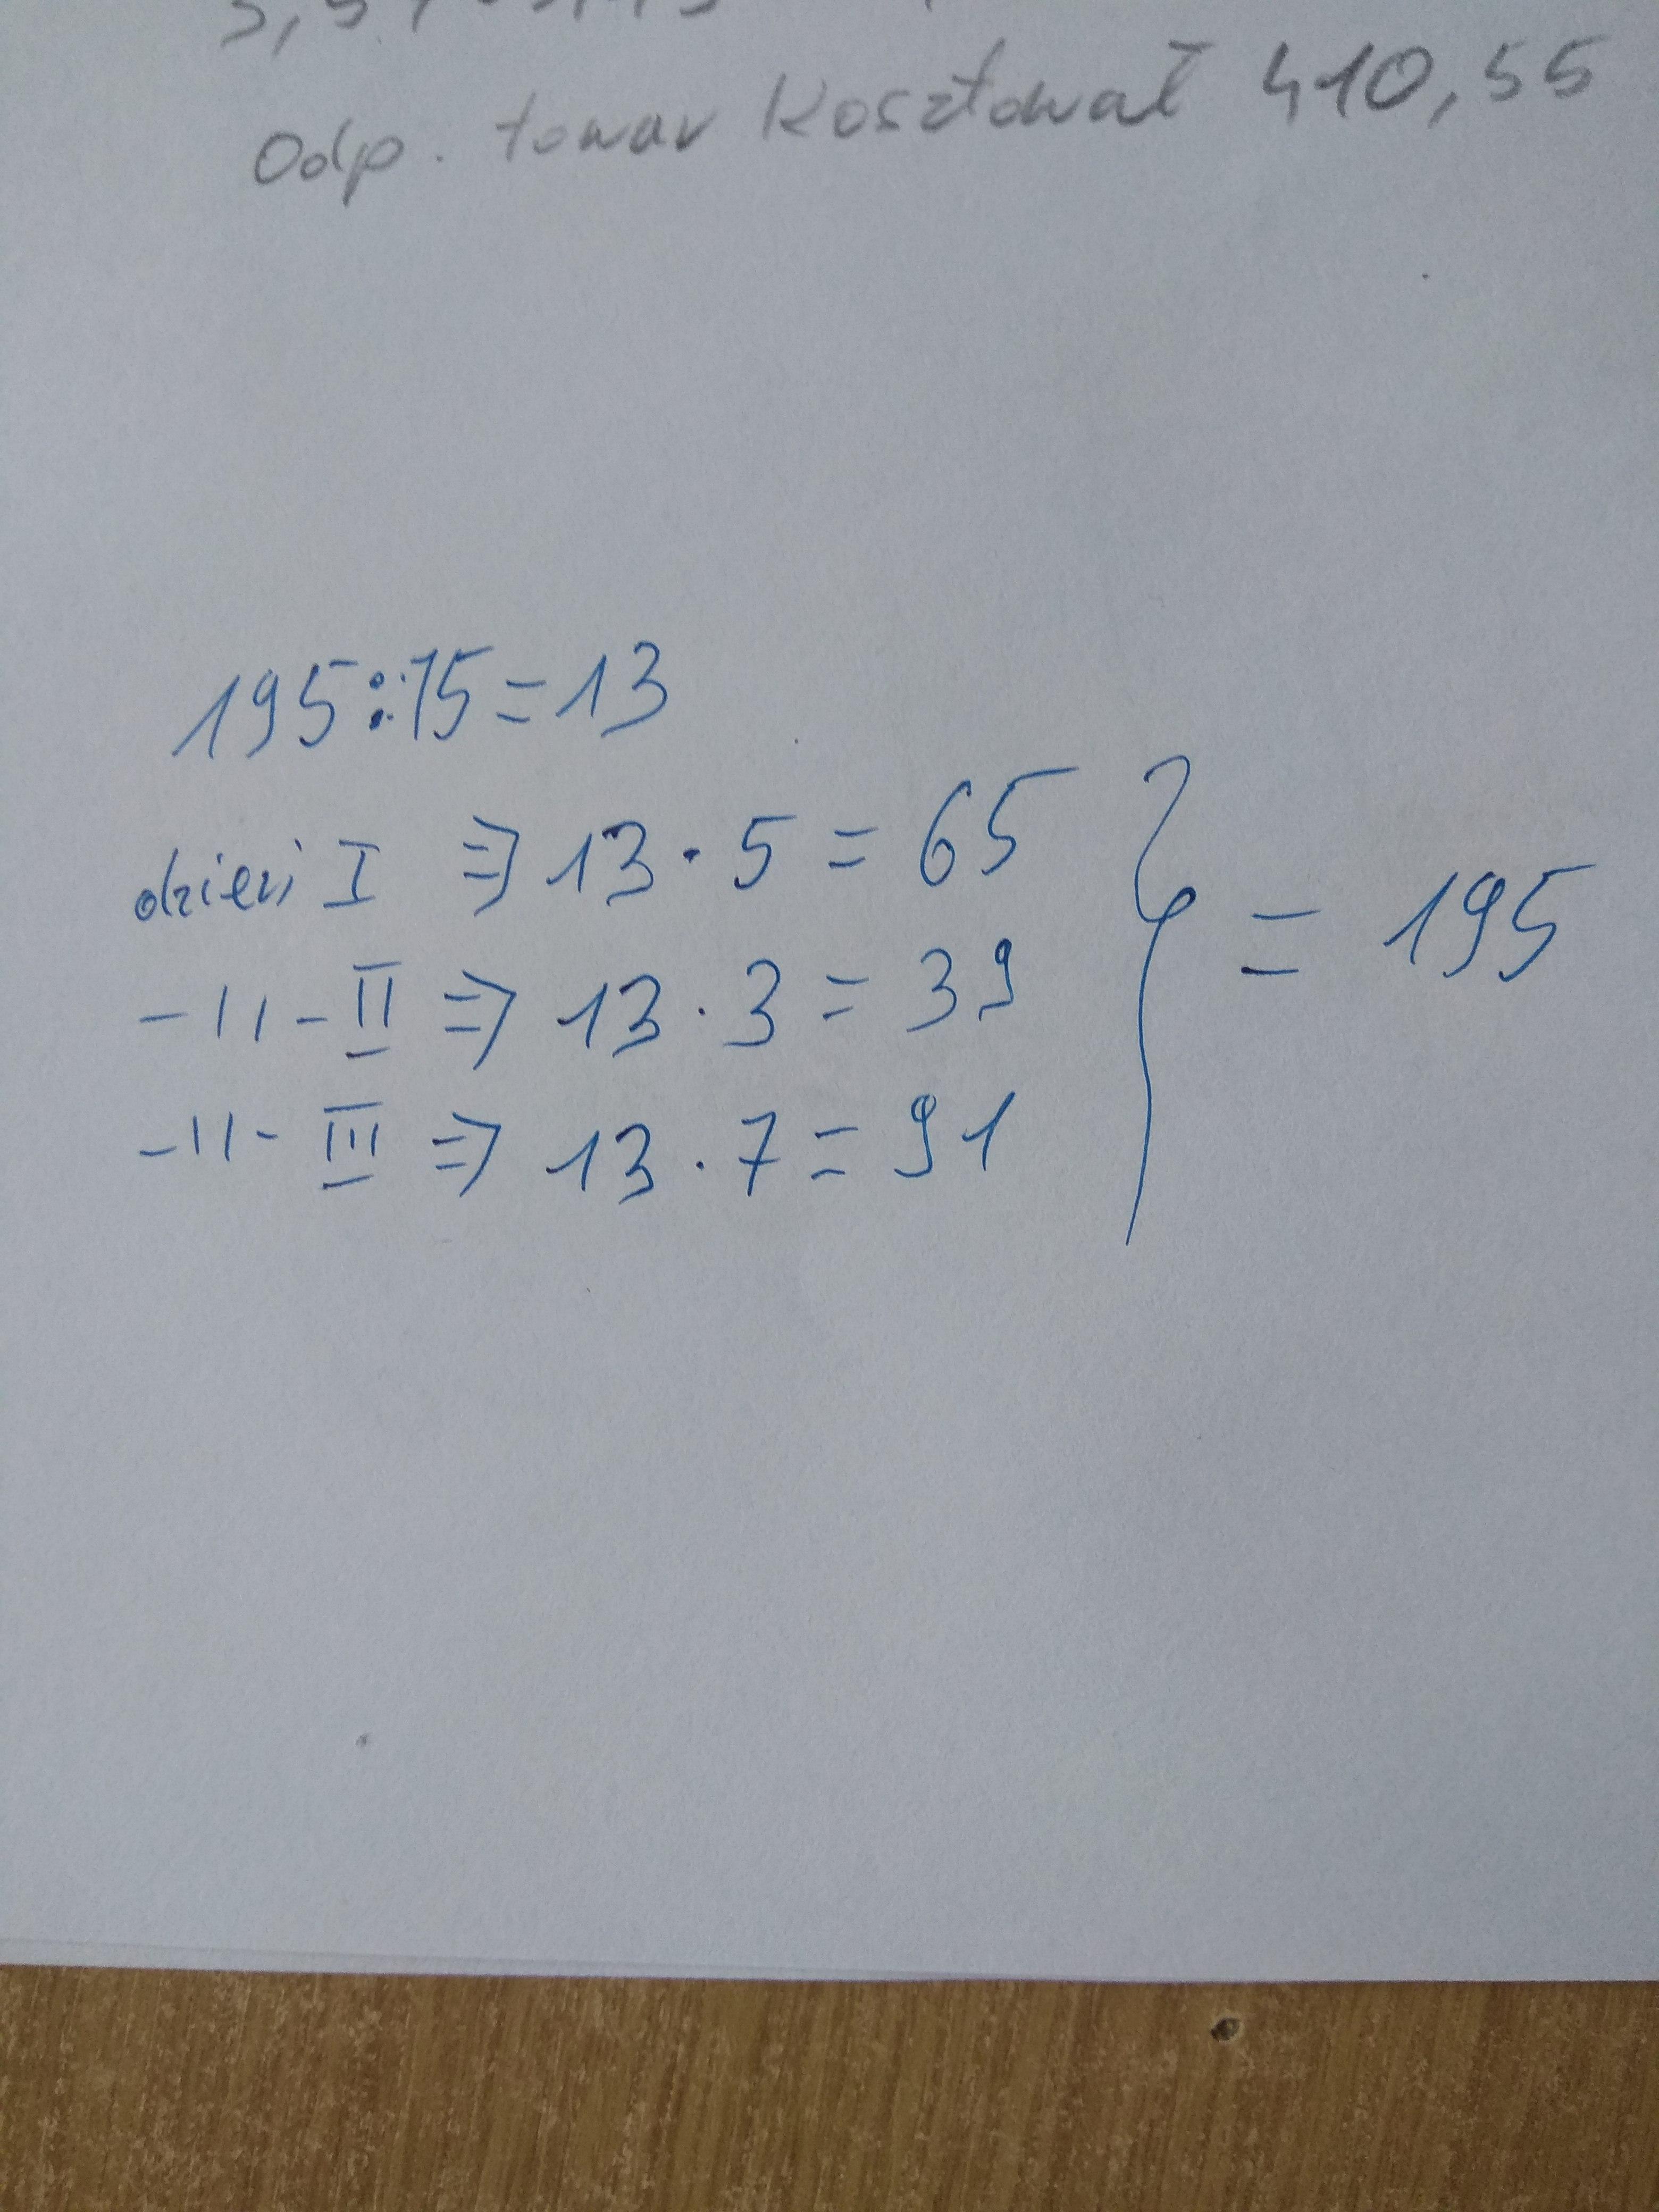 Odp. towar kosztował 410,55
195:15=13
dzień I ⇒ 13 · 5 = 65
-11- II ⇒ 13 · 3 = 39
-11- III ⇒ 13 · 7 = 91
} = 195